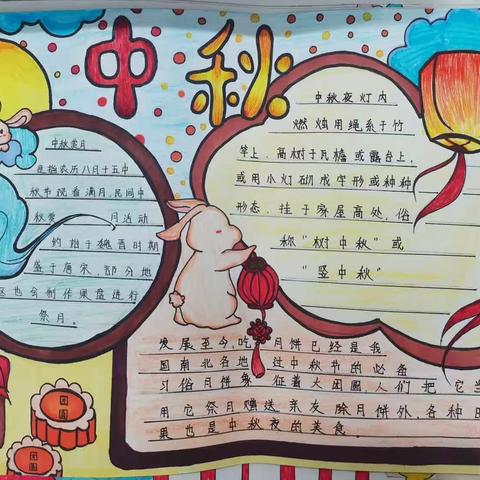 中秋
中秋赏月
是指农历八月十五中
秋节观看满月,民间中
秋赏 月活动
约始于魏晋时期
盛于唐宋,部分地
区也会制作果盘进行
祭月。
中秋夜灯内
燃烛用绳系于竹
竿上,高树于瓦檐或露台上,
或用小灯砌成字形或种种
形态,挂于家屋高处,俗
称"树中秋"或
"竖中秋"
发展至今,吃 月饼已经是我
国南北各地 过中秋节的必备
习俗月饼象 征着大团圆人们把它当
用它祭月赠送亲友除月饼外,各种
果也是中秋夜的美食.
团圆
团圆